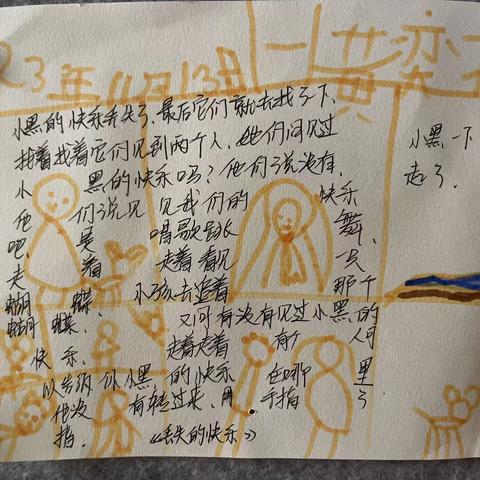 23年11月13日 一 黄奕
小黑的快乐丢失了、最后它们就去找了下、
找着找着它们见到两个人、她们问见过
小 黑的快乐吗？他们说没有、
他 们说见 见我们的 快乐
吧、是 唱歌跳 舞、
走 着 走着 看见 一只
蝴 蝶、 小孩去追着 那个
蝴蝶、、 又问有没有见过小黑的
快乐、 走着走着 有个 人问
以告诉你小黑 的快乐 在哪 里
他没 有转过来、用 手指 了
指、 《丢失的快乐》
小黑一下
走了、